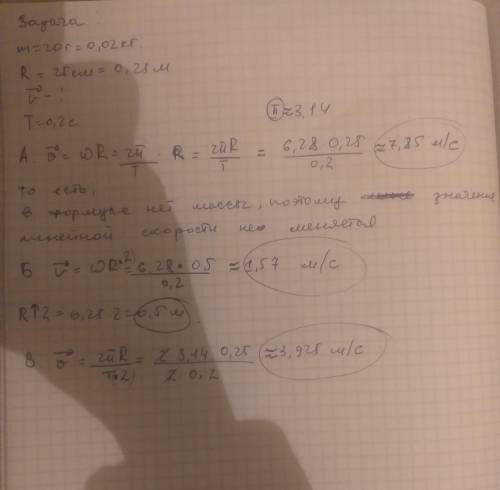 Задача.
m = 20г = 0,02кг.
R = 25см = 0,25м
v⃗ - ?
T = 0,2с.
π ≈ 3,14
А. v⃗ = ωR = 2π/T · R = 2πR/T = 6,28 0,25/0,2 ≈ 7,85 м/с
то есть,
в формуле нет массы, поэтому значения
линейной скорости не меняется
Б v⃗ = ωR·2 = 6,28 · 0,5/0,2 ≈ 1,57 м/с
R↑2 = 0,25 2 = 0,5 м.
В. v⃗ = 2πR/T·2 = 2 3,14 0,25/2 0,2 ≈ 3,925 м/с